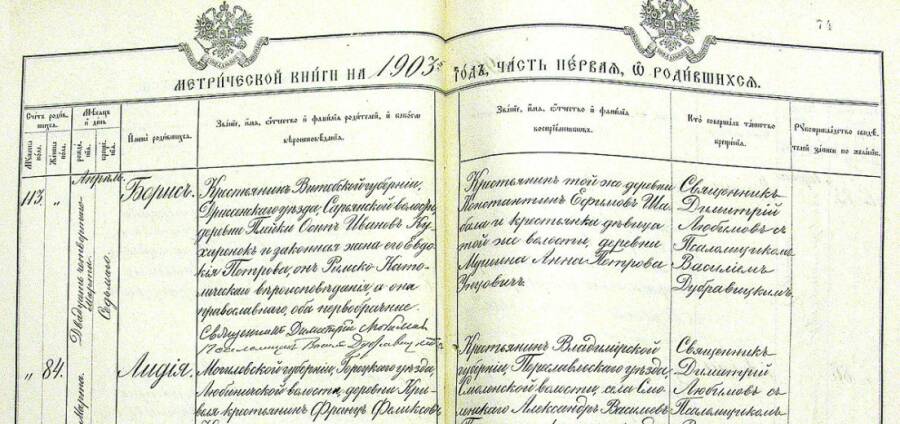 74
МЕТРИЧЕСКОЙ КНИГИ НА 1903й ГОДЪ, ЧАСТЬ ПЕРВАЯ, Ѡ РОДИВШИХСЯ.
Счетъ родив-
шихся.
Мужеска
пола.
Женска
пола.
Мѣсяцъ
и день
рожде-
нія.
креще-
нія.
Имена родившихся.
Званіе, имя, отчество и фамилія родителей, и какого
вѣроисповѣданія.
Званіе, имя, отчество и фамилія
воспріемниковъ.
Кто совершалъ таинство
крещенія.
Рукоприкладство свидѣ-
телей записи по желанію.
113.
„
Апрѣль.
Двадцать четвертаго
Марта
Седьмаго.
Борисъ.
Крестьянинъ Витебской губерніи,
Дриссенскаго уѣзда, Сарьянской волости,
деревни Тайки Осипъ Ивановъ Ку-
харенокъ и законная жена его Евдо-
кія Петрова, онъ Римско-Като-
лическаго вѣроисповѣданія а она
православнаго, оба первобрачные.
Священникъ Димитрій Любимовъ
Псаломщикъ Василій Дубравицкій
Крестьянинъ той же деревни
Константинъ Ефимовъ Ша-
бала и крестьянка дѣвица
той же волости, деревни
Анна Петрова
Священникъ
Димитрій
Любимовъ съ
Псаломщикомъ
Василіемъ
Дубравицкимъ.
„
84.
Марта.
Лидія.
Могилевской губерніи, Горецкаго уѣзда,
Любиничской волости, деревни Кри-
крестьянинъ Францъ Феликсовъ
Крестьянинъ Владимірской
губерніи, Переславльскаго уѣзда,
Смоленской волости, села Смо-
ленскаго Александръ Васильевъ
Священникъ
Димитрій
Любимовъ съ
Псаломщикомъ